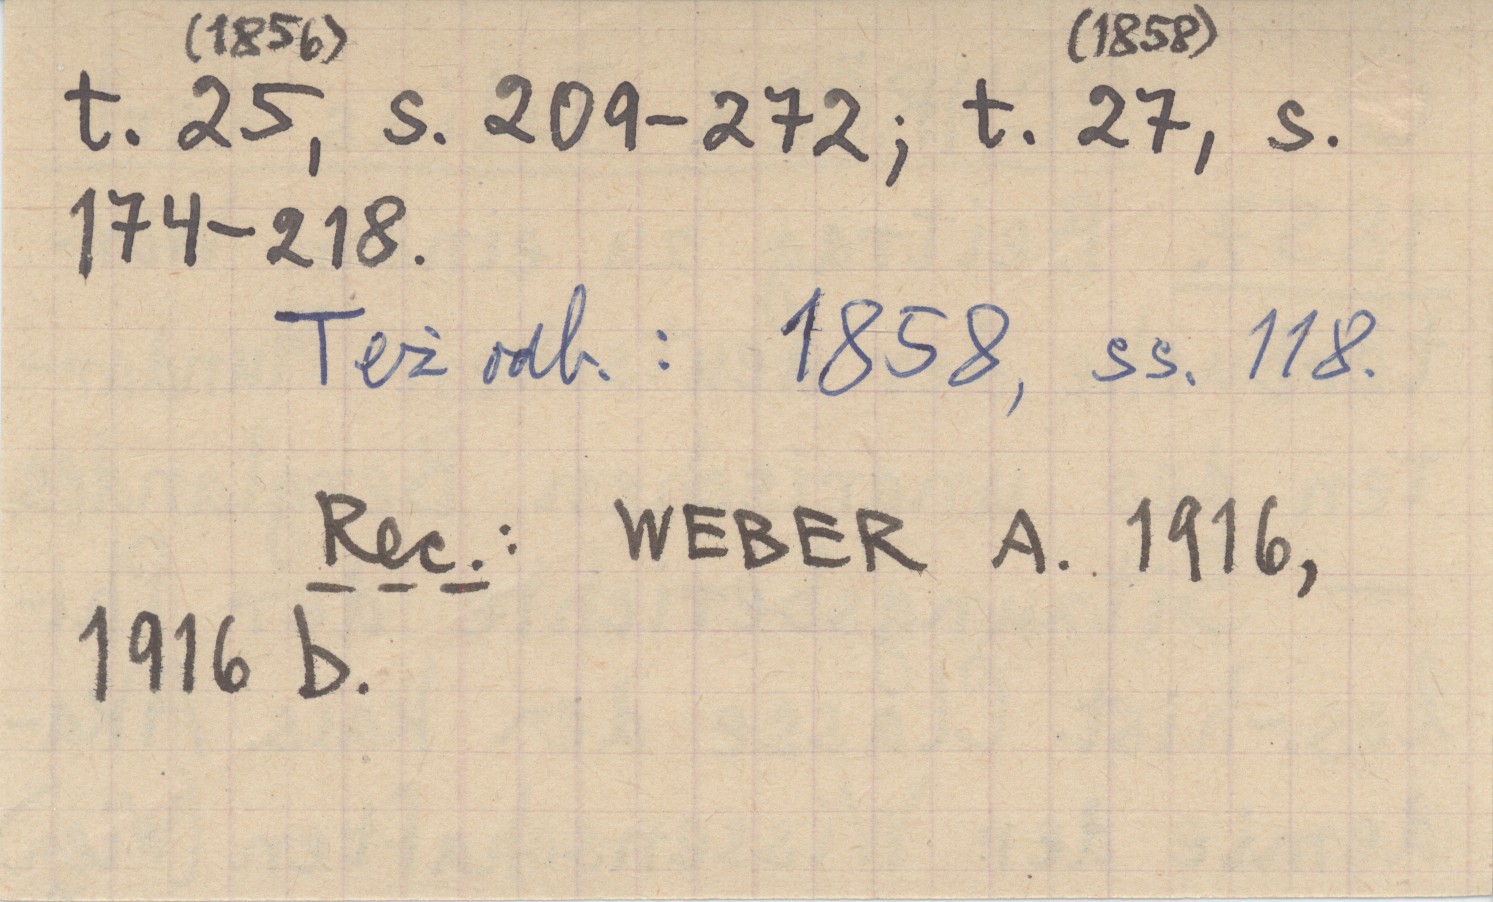 (1856) (1858)
t. 25, s. 209-272; t. 27, s.
174-218.
Też odb.: 1858, ss. 118.
Rec.: WEBER A. 1916,
1916 b.